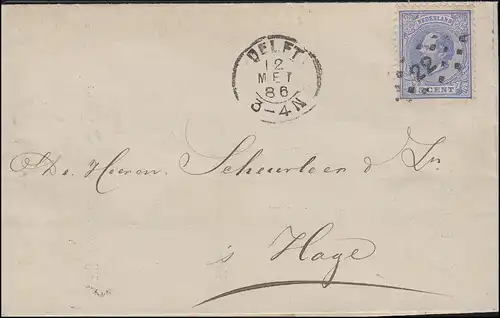 DELFT
12
MEI
86
3-4N
NEDERLAND
22
5 CENT
De Heeren Scheurleer & Zn
's Hage